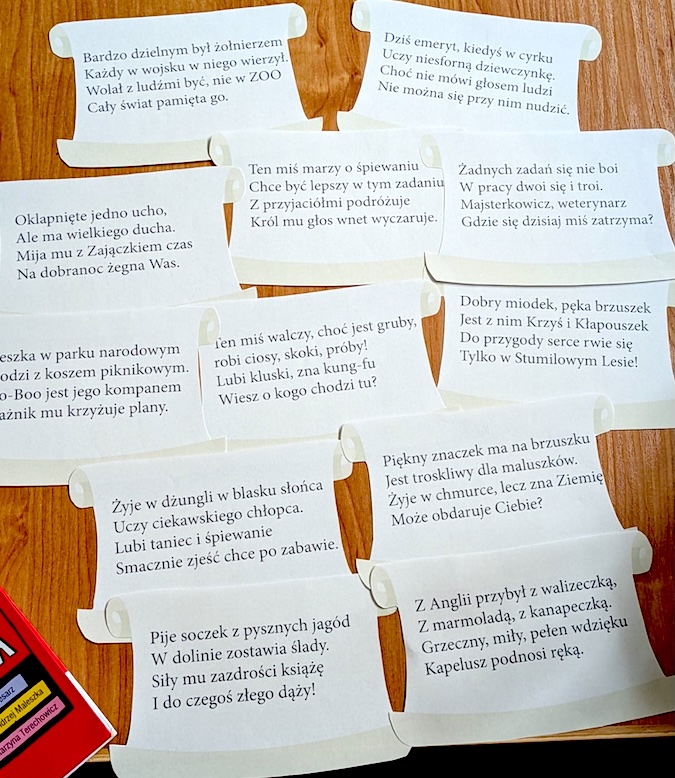 Bardzo dzielnym był żołnierzem
Każdy w wojsku w niego wierzył.
Wolał z ludźmi być, nie w ZOO
Cały świat pamięta go.
Dziś emeryt, kiedyś w cyrku
Uczy niesforną dziewczynkę.
Choć nie mówi głosem ludzi
Nie można się przy nim nudzić.
Oklapnięte jedno ucho,
Ale ma wielkiego ducha.
Mija mu z Zajączkiem czas
Na dobranoc żegna Was.
Ten miś marzy o śpiewaniu
Chce być lepszy w tym zadaniu
Z przyjaciółmi podróżuje
Król mu głos wnet wyczaruje.
Żadnych zadań się nie boi
W pracy dwoi się i troi.
Majsterkowicz, weterynarz
Gdzie się dzisiaj miś zatrzyma?
eszka w parku narodowym
odzi z koszem piknikowym.
o-Boo jest jego kompanem
ażnik mu krzyżuje plany.
Ten miś walczy, choć jest gruby,
robi ciosy, skoki, próby!
Lubi kluski, zna kung-fu
Wiesz o kogo chodzi tu?
Dobry miodek, pęka brzuszek
Jest z nim Krzyś i Kłapouszek
Do przygody serce rwie się
Tylko w Stumilowym Lesie!
Żyje w dżungli w blasku słońca
Uczy ciekawskiego chłopca.
Lubi taniec i śpiewanie
Smacznie zjeść chce po zabawie.
Piękny znaczek ma na brzuszku
Jest troskliwy dla maluszków.
Żyje w chmurce, lecz zna Ziemię
Może obdaruje Ciebie?
Pije soczek z pysznych jagód
W dolinie zostawia ślady.
Siły mu zazdrości książę
I do czegoś złego dąży!
Z Anglii przybył z walizeczką,
Z marmoladą, z kanapeczką.
Grzeczny, miły, pełen wdzięku
Kapelusz podnosi ręką.
esarz
ndrzej Maleszka
arzyna Terechowicz